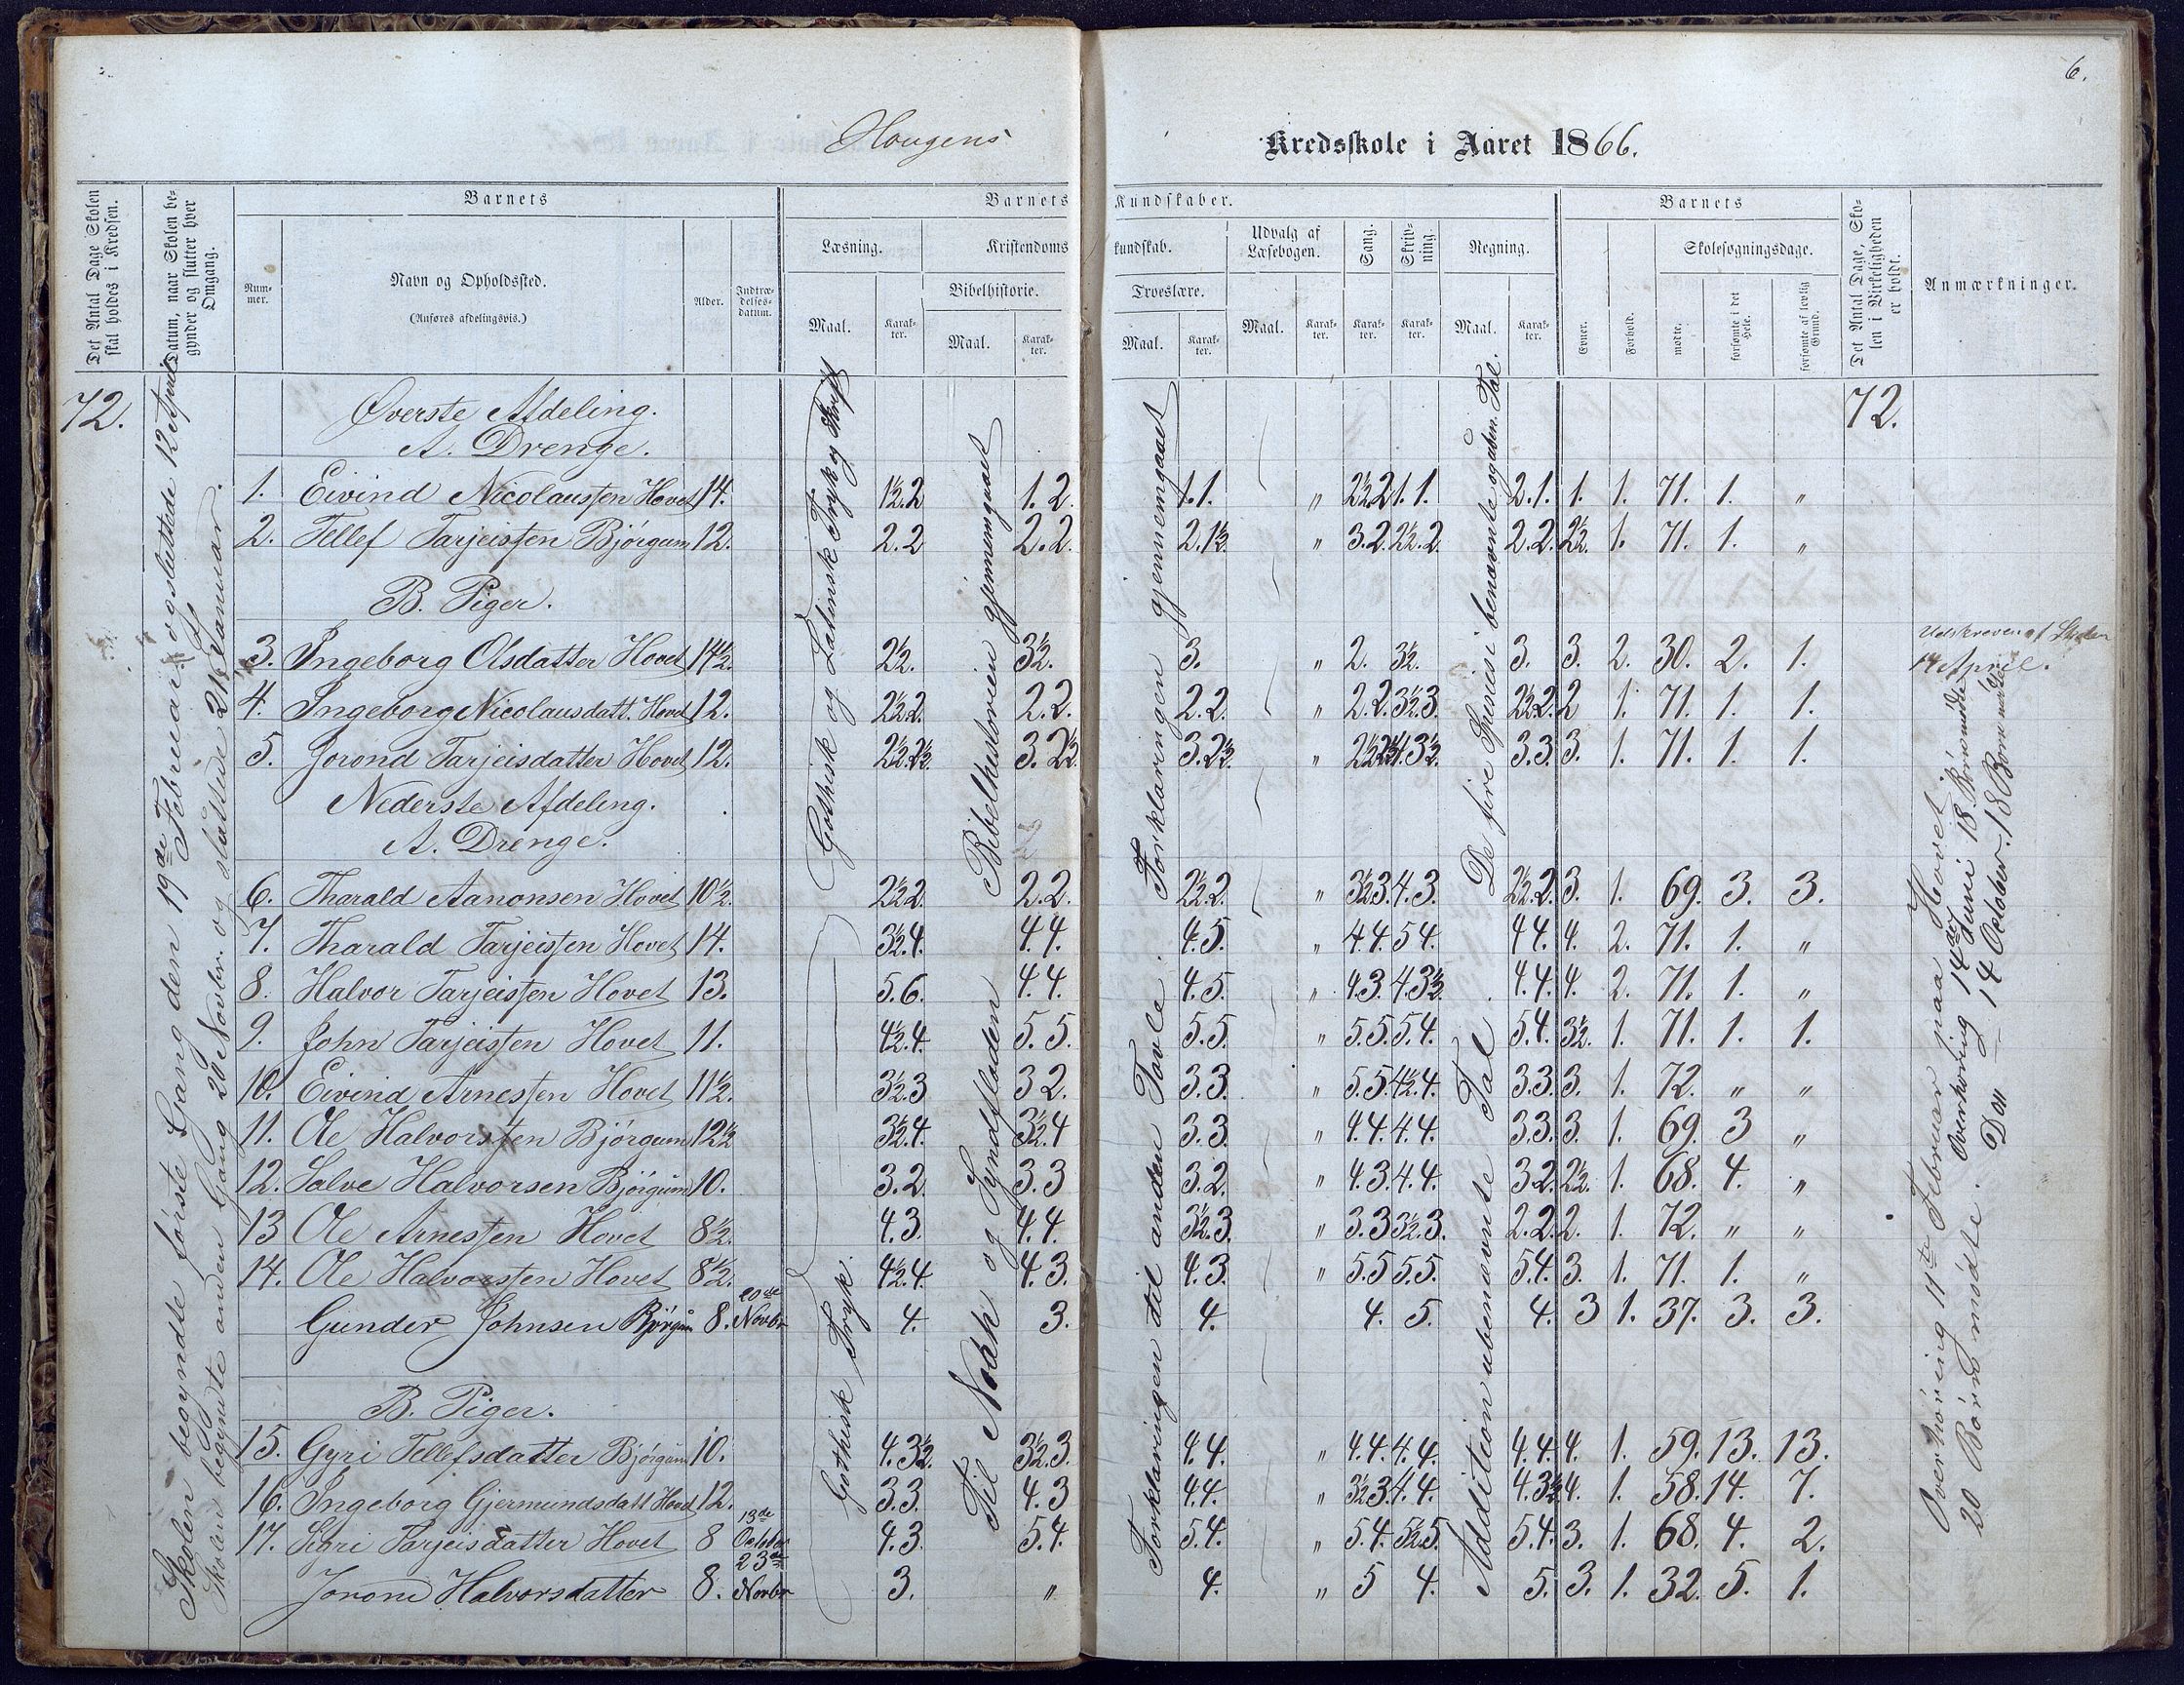 6.
Hougens Kredsskole i Aaret 1866.
Det Antal Dage Skolen skal holdes i Kredsen.
Datum, naar Skolen begynder og slutter hver Omgang.
Barnets
Nummer.
Navn og Opholdssted.
(Anføres afdelingsvis.)
Alder.
Indtrædelsesdatum.
Barnets Kundskaber.
Læsning.
Maal.
Karakter.
Kristendomskundskab.
Bibelhistorie.
Maal.
Karakter.
Troeslære.
Maal.
Karakter.
Udvalg af Læsebogen.
Maal.
Karakter.
Sang.
Karakter.
Skrivning.
Karakter.
Regning.
Maal.
Karakter.
Barnets
Evner.
Forhold.
Skolesøgningsdage.
mødte.
forsømte i det Hele.
forsømte af lovlig Grund.
Det Antal Dage, Skolen i Virkeligheden er holdt.
Anmærkninger.
72.
72.
Skolen begyndte første Gang den 19de Februar og sluttede 12 April.
Skolen begynte anden Gang 20 Novbr. og sluttede 21 Januar.
Gothisk og Latinsk Tryk og Skrift
Gothisk Tryk.
Bibelhestorien gjennemgaaet
Til Noah og Syndfloden
Forklaringen gjennemgaaet
Forklaringen til anden Tavle.
De fire Spesies i benævnte og uben. Tal
Addition ubenævnte Tal
Øverste Afdeling.
A. Drenge.
1. Eivind Nicolaussen Hovet 14. 1½.2 1.2 1.1. " 2½.2 1.1. 2.1. 1. 1. 71. 1. "
2. Tellef Tarjeissen Bjørgum 12. 2.2 2.2. 2.1½. " 3.2. 2½.2. 2.2. 2½. 1. 71. 1. "
B. Piger.
3. Ingeborg Olsdatter Hovet 14½. 2½. 3½. 3. " 2. 3½. 3. 3. 2. 30. 2. 1. Udskreven af Skolen 14 April.
4. Ingeborg Nicolausdatt. Hovet 12. 2½.2. 2.2. 2.2. " 2.2. 3½.3. 2½.2. 2 1. 71. 1. 1.
5. Jorond Tarjeisdatter Hovet 12. 2½.2½. 3.2½. 3.2½. " 2½.2½ 4.3½. 3.3. 3. 1. 71. 1. 1.
Nederste Afdeling.
A. Drenge.
6. Tharald Aanonsen Hovet 10½. 2½.2. 2.2. 2½.2. " 3½.3. 4.3. 2½.2. 3. 1. 69. 3. 3.
7. Tharald Tarjeissen Hovet 14. 3½.4. 4.4. 4.5. " 4.4. 5 4. 4 4. 4. 2. 71. 1. "
8. Halvor Tarjeissen Hovet 13. 5.6. 4.4. 4.5. " 4.3. 4.3½. 4.4. 4. 2. 71. 1. "
9. John Tarjeissen Hovet 11. 4½.4. 5.5. 5.5. " 5.5. 5.4. 5.4. 3½. 1. 71. 1. 1.
10. Eivind Arnessen Hovet 11½. 3½.3 3 2. 3.3. " 5.5. 4½.4. 3.3. 3. 1. 72. " "
11. Ole Halvorssen Bjørgum 12½ 3½.4. 3½.4 3.3. " 4.4. 4.4. 3.3. 3. 1. 69. 3 "
12. Salve Halvorsen Bjørgum 10. 3.2. 3.3 3.2. " 4.3. 4.4. 3.2. 2½. 1. 68. 4. "
13 Ole Arnessen Hovet 8½. 4.3. 4.4. 3½.3. " 3.3. 3½.3. 2.2. 2. 1. 72. " "
14. Ole Halvorssen Hovet 8½. 4½.4. 4.3. 4.3. " 5.5 5.5. 5.4. 3. 1. 71. 1. "
Gunder Johnsen Bjørgum 8. 20de Novbr 4. 3. 4. 4. 5. 4. 3 1. 37. 3. 3.
B. Piger.
15. Gyri Tellefsdatter Bjørgum 10. 4.3½. 3½.3. 4.4. " 4.4. 4.4. 4.4. 4. 1. 59. 13. 13.
16. Ingeborg Gjermundsdatt Hovet 12. 3.3. 4.3 4.4. " 3½.3. 4.4. 4.3½ 4. 1. 58. 14. 7.
17. Sigri Tarjeisdatter Hovet 8 13de October 4.3. 5.4. 5.4. " 5.4. 5½.5. 5.4. 3. 1. 68. 4. 2.
Joron Halvorsdatter 8. 23de Novbr 3. " 4. " 5 4. 5. 3. 1. 32. 5. 1.
Overhøring 11te Februar paa Hovet.
20 Børn mødte.
Overhøring 14de Juni 18 Børn mødte
Do — 14 October. 18 Børn mødte